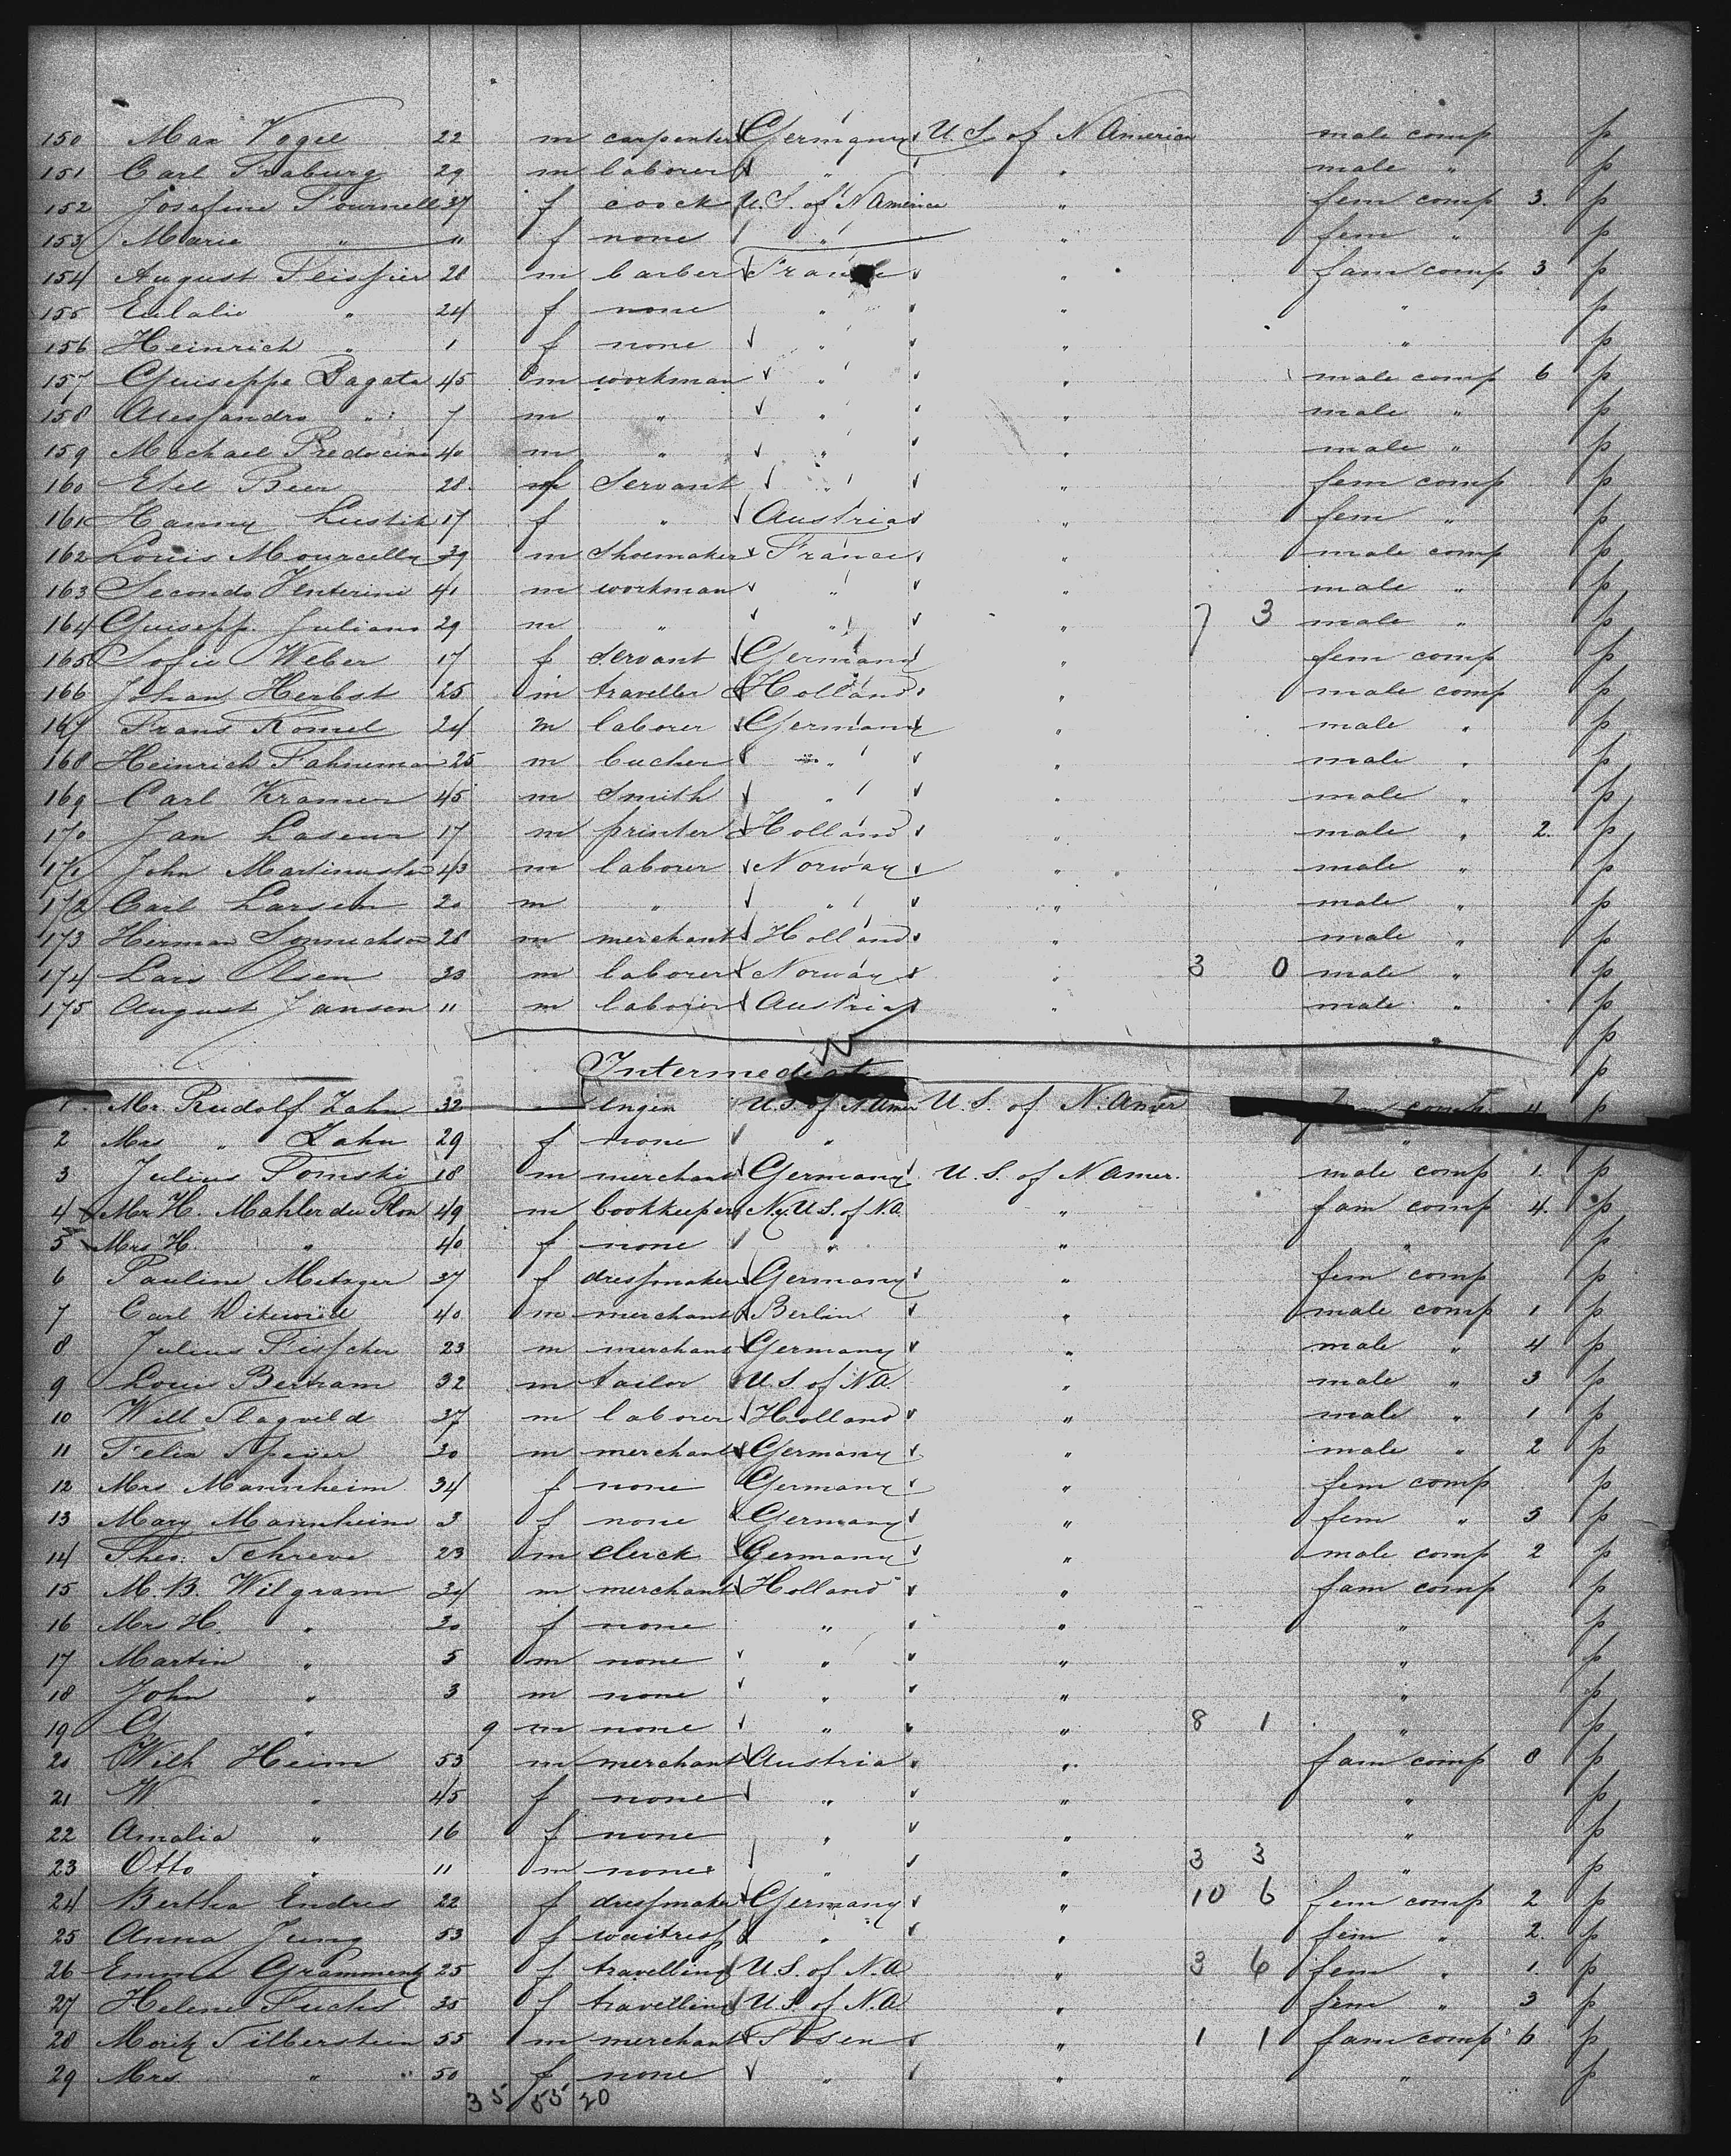 150 Max Vogel 22 m carpenter Germany U.S. of N America male comp p
151 Carl 29 m laborer " " male " p
152 Josefine Tournell 37 f coock U.S. of N America " fem comp 3. p
153 Marie " " f none " " fem " p
154 August 28 m barber France " fam comp 3 p
155 Eulalie " 24 f none " " " p
156 Heinrich " 1 f none " " " p
157 Guiseppe Bagata 45 m workman " " male comp 6 p
158 Alessandro " 7 m " " " male " p
159 Michael 40 m " " " male " p
160 Etel Beer 28 f Servant " " fem comp p
161 Hanny Lustik 17 f " Austria " fem " p
162 Louis 39 m Shoemaker France " male comp p
163 Secondo Venterini 41 m workman " " male " p
164 Guisepp. Juliano 29 m " " " 7 3 male " p
165 Sofie Weber 17 f Servant Germany " fem comp p
166 Johan Herbst 25 m traveller Holland " male comp p
167 Frans Romel 24 m laborer Germany " male " p
168 Heinrich Fahneman 25 m bucher " " male " p
169 Carl Kramer 45 m Smith " " male " p
170 Jan 17 m printer Holland " male " 2. p
171 John 43 m laborer Norway " male " p
172 Carl Larsen 20 m " " " male " p
173 Herman Sonnichsen 28 m merchant Holland " male " p
174 Lars Olsen 33 m laborer Norway " 3 0 male " p
175 August Jansen 11 m laborer Austria " male " p
" p
Intermediate p
1. Mr. Rudolf Zahn 32 engin U.S. of N.Amer U.S. of N.Amer fam comp 4 p
2 Mrs " Zahn 29 f none " "
3 Julius Tomski 18 m merchant Germany U.S. of N Amer. male comp 1. p
4 Mr H. Mahler du Plon 49 m bookkeeper N.y. U.S. of N.A. " fam comp 4. p
5 Mrs H. " 40 f none " " " p
6 Pauline Metzger 37 f dressmaker Germany " fem comp p
7 Carl 40 m merchant Berlin " male comp 1 p
8 Julius Fisscher 23 m merchant Germany " male " 4 p
9 Louis Bertram 32 m tailor U.S. of N.A. " male " 3 p
10 Will Slagveld 37 m laborer Holland " male " 1 p
11 Felix Speijer 30 m merchant Germany " male " 2 p
12 Mrs Mannheim 34 f none Germany " fem comp p
13 Mary Mannheim 3 f none Germany " fem " 5 p
14 Theo. Schreve 23 m Clerck Germany " male comp 2 p
15 M.B. Wilgram 34 m merchant Holland " fam comp p
16 Mrs H. " 30 f none " " " p
17 Martin " 5 m none " " " p
18 John " 3 m none " " " p
19 G " 9 m none " " 8 1 " p
20 Wilh Heim 53 m merchant Austria " fam comp 8 p
21 W " 45 f none " " " p
22 Amalia " 16 f none " " " p
23 Otto " 11 m none " " 3 3 " p
24 Bertha Endres 22 f dressmaker Germany " 10 6 fem comp 2 p
25 Anna Jung 53 f waitress " " fem " 2. p
26 Emma 25 f travelling U.S. of N.A " 3 6 fem " 1. p
27 Helene Fuchs 35 f travelling U.S. of N.A " fem " 3 p
28 Moritz Silberstein 55 m merchant Posen " 1 1 fam comp 6 p
29 Mrs " " 50 f none " " " p
35 55 20